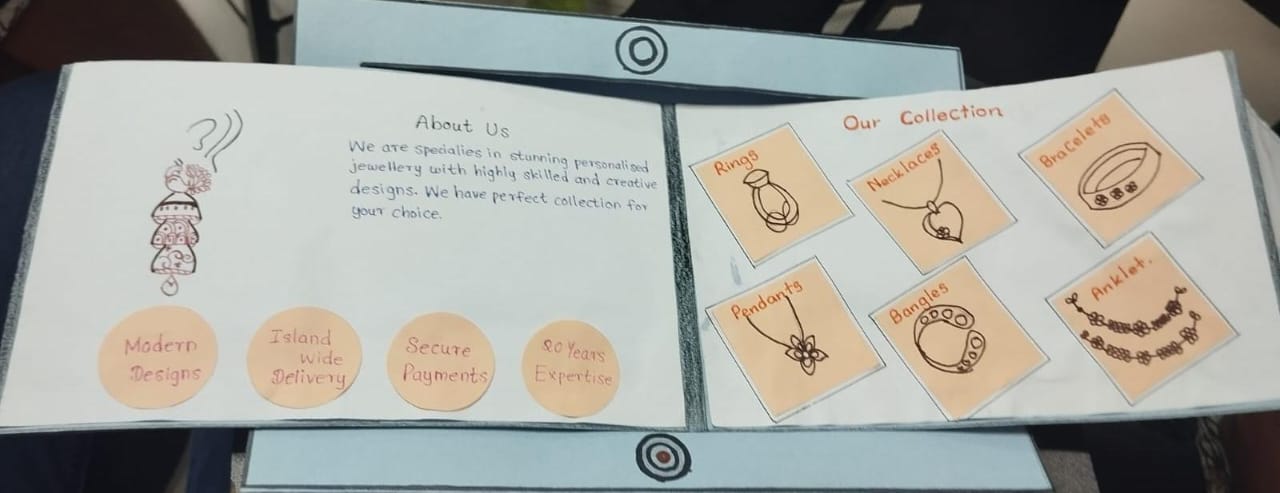 About Us
We are specialies in stunning personalised
jewellery with highly skilled and creative
designs. We have perfect collection for
your choice.
Modern
Designs
Island
Wide
Delivery
Secure
Payments
20 Years
Expertise
Our Collection
Rings
Necklaces
Bracelets
Pendants
Bangles
Anklet.